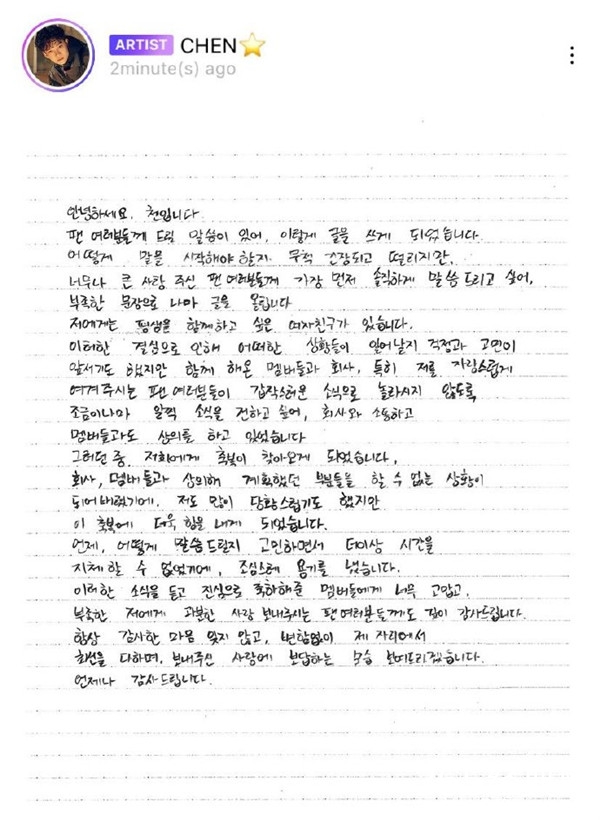 ARTIST CHEN
2minute(s) ago
안녕하세요. 첸입니다
팬 여러분들께 드릴 말씀이 있어, 이렇게 글을 쓰게 되었습니다.
어떻게 말을 시작해야 할지 무척 긴장되고 떨리지만,
너무나 큰 사랑 주신 팬 여러분들께 가장 먼저 솔직하게 말씀드리고 싶어,
부족한 문장으로 나마 글을 올립니다
저에게는 평생을 함께하고 싶은 여자친구가 있습니다.
이러한 결심으로 인해 어떠한 상황들이 일어날지 걱정과 고민이
앞서기도 했지만 함께 해온 멤버들과 회사, 특히 저를 자랑스럽게
여겨주시는 팬 여러분들이 갑작스러운 소식으로 놀라시지 않도록
조금이나마 일찍 소식을 전하고 싶어, 회사와 소통하고
멤버들과도 상의를 하고 있었습니다
그러던 중 저희에게 축복이 찾아오게 되었습니다.
회사, 멤버들과 상의해 계획했던 부분들을 할 수 없는 상황이
되어버렸기에, 저도 많이 당황스럽기도 했지만
이 축복에 더욱 힘을 내게 되었습니다.
언제, 어떻게 말씀드릴지 고민하면서 더이상 시간을
지체할 수 없었기에, 조심스레 용기를 냈습니다.
이러한 소식을 듣고 진심으로 축하해준 멤버들에게 너무 고맙고,
부족한 저에게 과분한 사랑 보내주시는 팬 여러분들께도 깊이 감사드립니다.
항상 감사한 마음 잊지 않고, 변함없이 제 자리에서
최선을 다하며, 보내주신 사랑에 보답하는 모습 보여드리겠습니다.
언제나 감사드립니다.